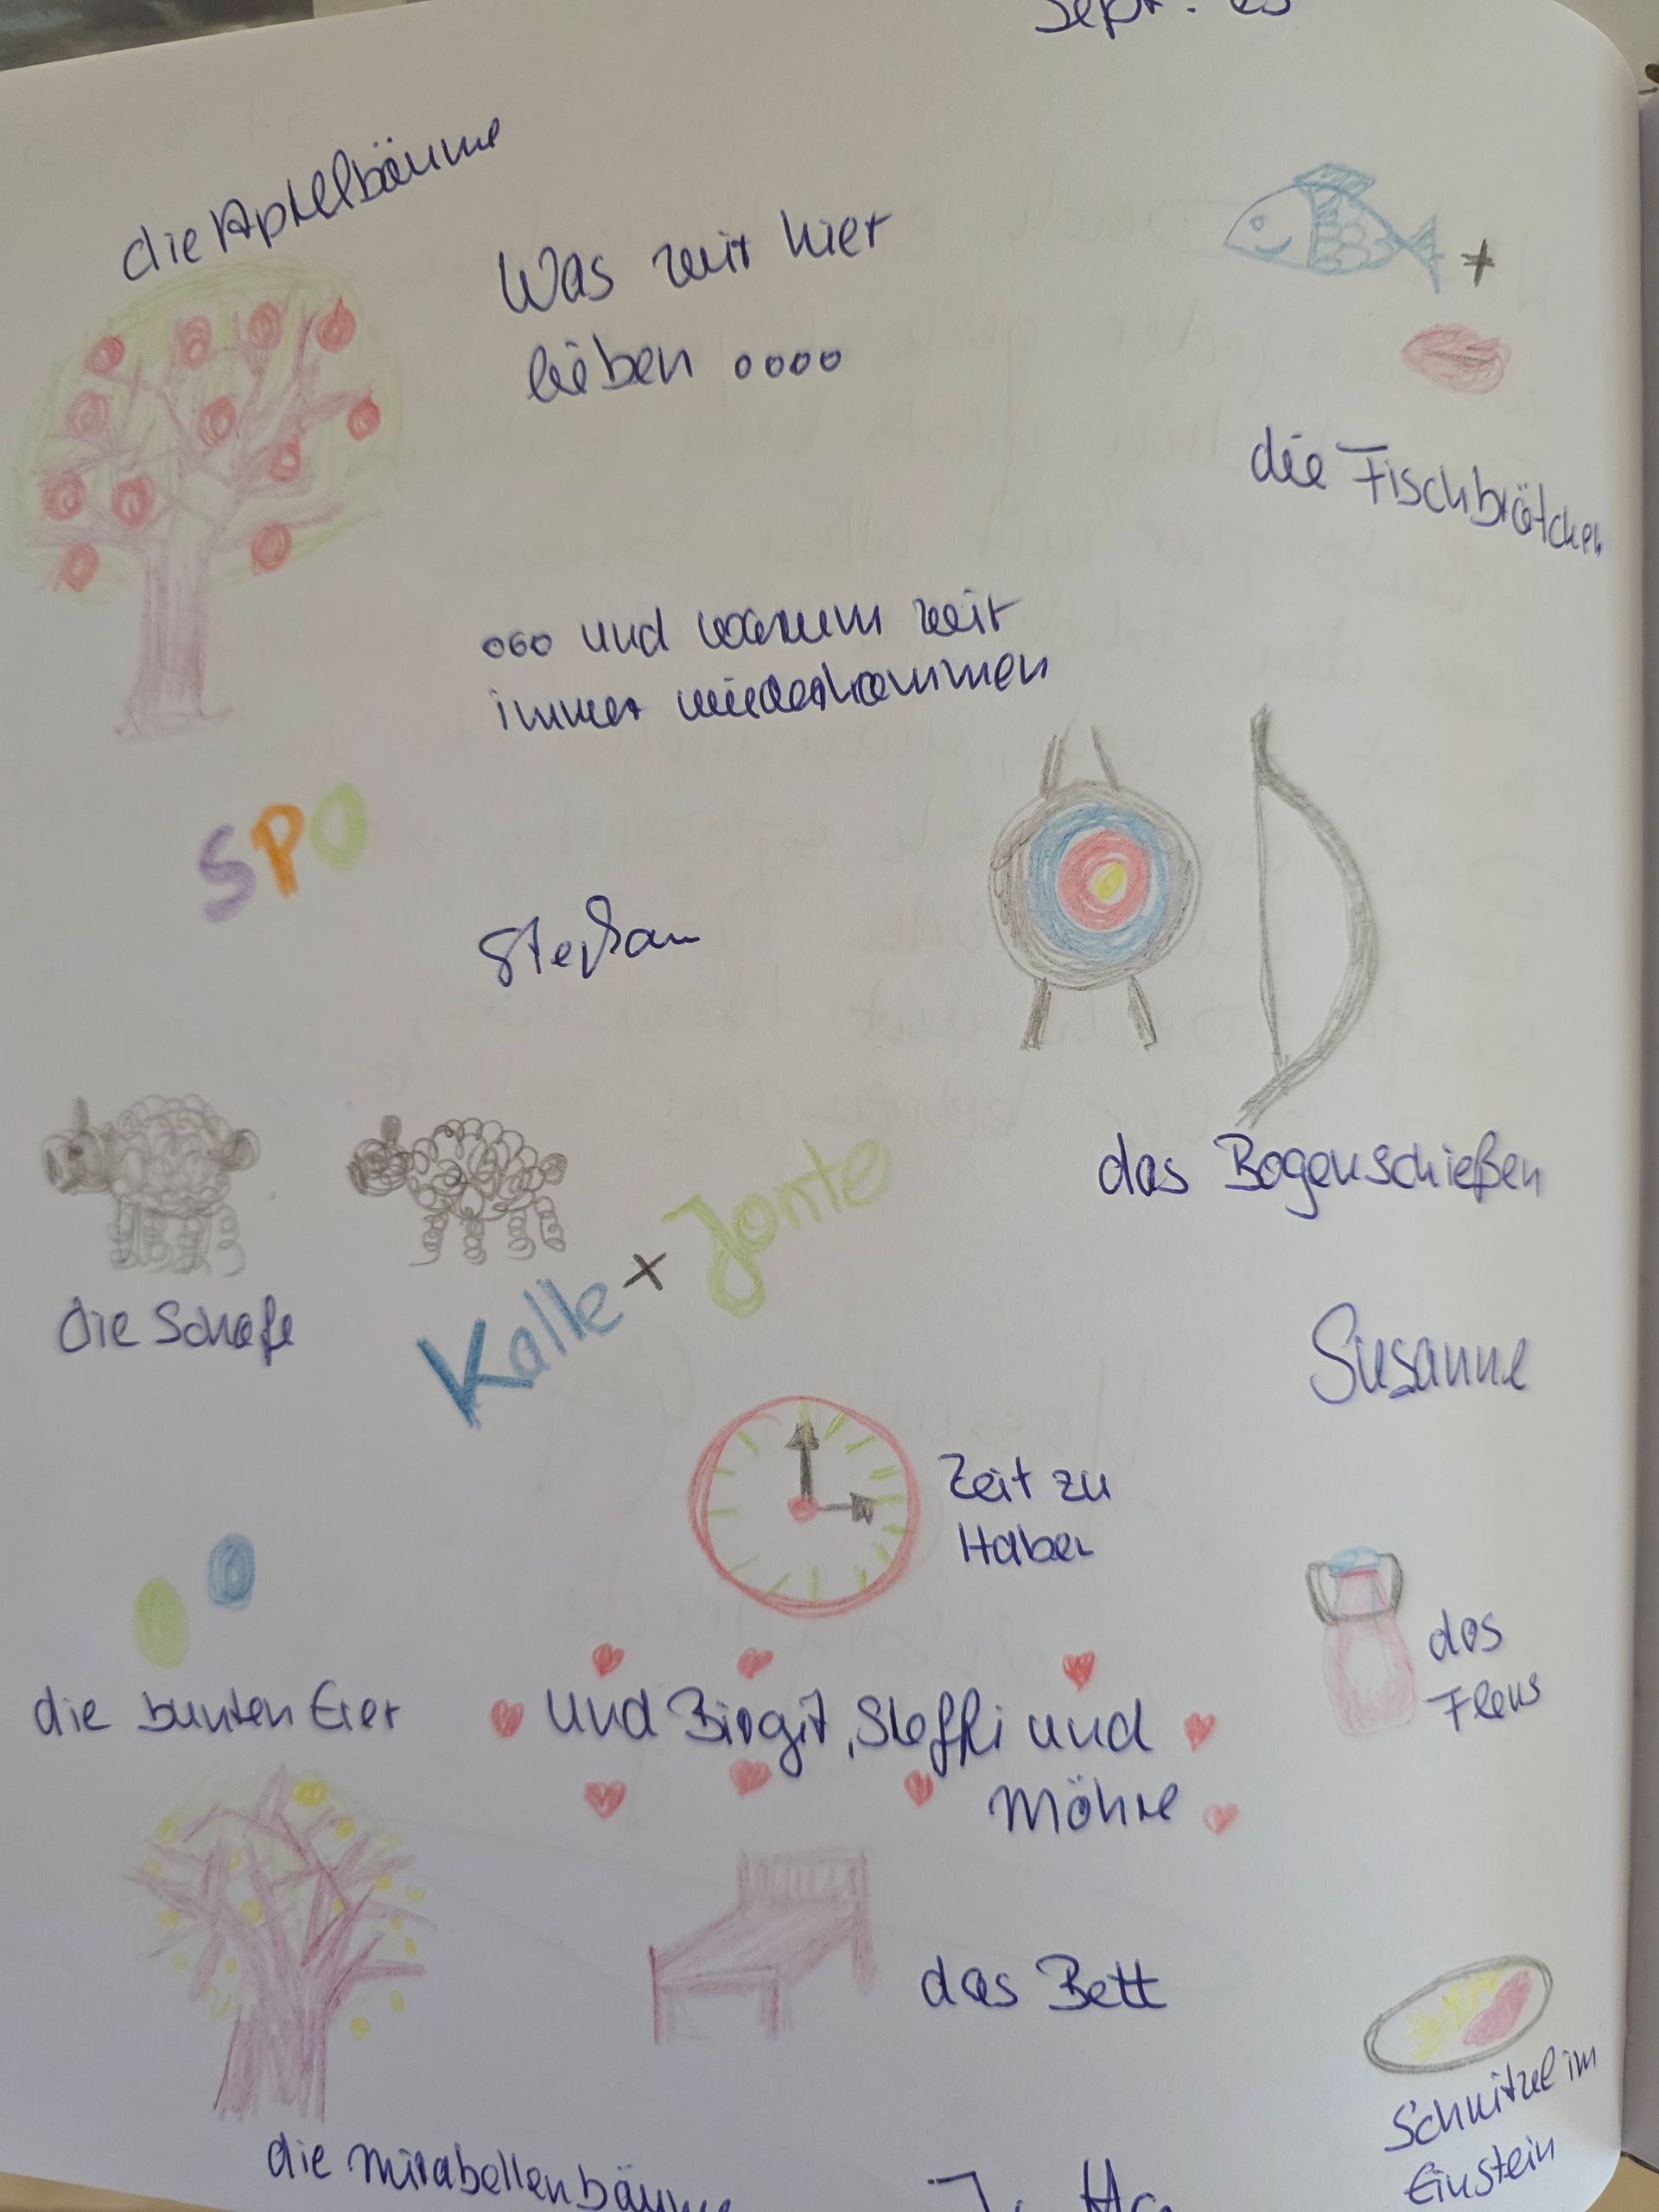 Sept. 25
die Apfelbäume
Was wir hier
lieben oooo
+
die Fischbrötchen
ooo und warum wir
immer wiederkommen
SPO
Stephan
das Bogenschießen
die Schafe
Kalle + Jonte
Susanne
Zeit zu
Haben
das
Flens
die bunten Eier
und Birgit, Steffi und
Möhre
das Bett
Schnitzel im
Einstein
die Mirabellenbäume